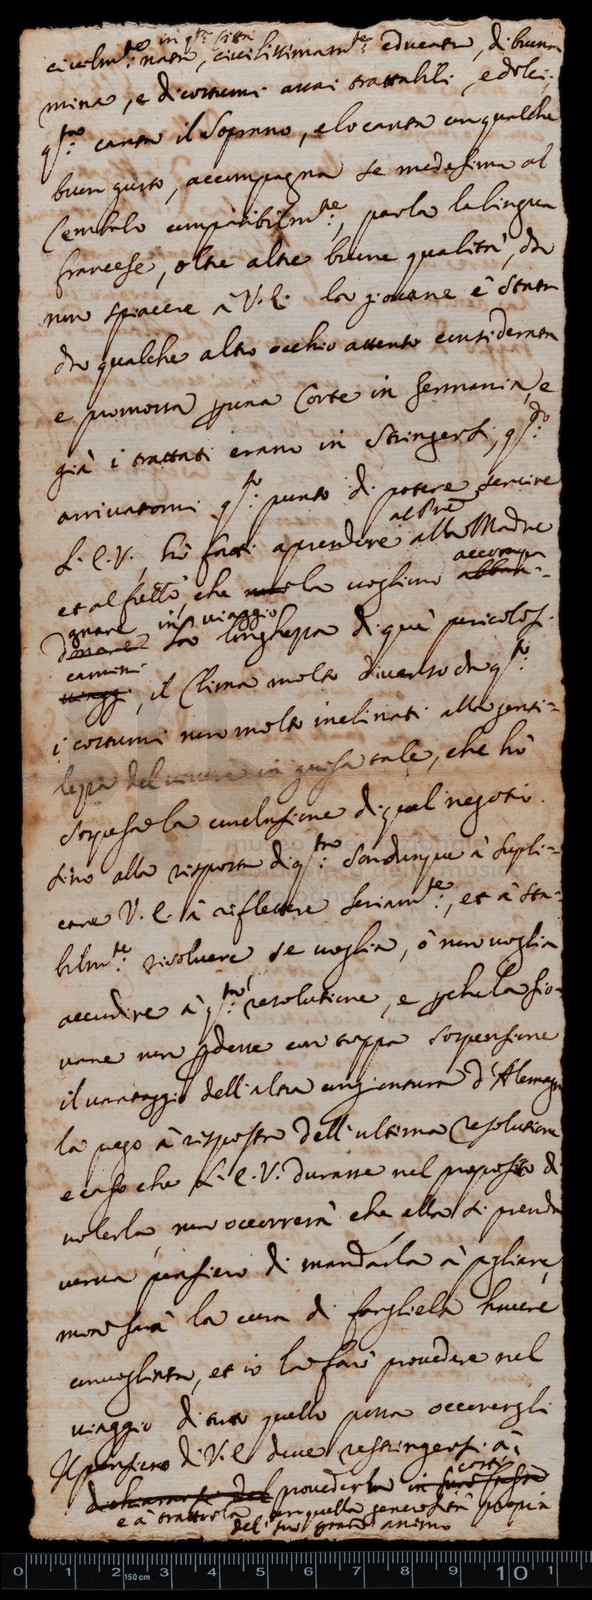 in q.ta Città
civilm.te nata, civilissimam.te educata, di buona
mina, e di costumi assai trattabili, e dolci;
q.sta canta il Soprano, e lo canta con qualche
buon gusto, accompagna se medesima al
Cembalo compitibilm.te, parla la lingua
francese, oltre altre buone qualità, da
non spiacere à V.E. la giovane è stata
da qualche altro occhio attento considerata
e promossa p una Corte in Germania, e
già i trattati erano in stringersi, q.do
arrivatomi q.sto punto di potere servire
L.E.V., hò fatto aprendere alla Madre
al Pre
et al fratello che la vogliono accompa
gnare in viaggio La lunghezza di quei pericolosi
camini, il Clima molto diverso da q.sto
i costumi non molto inclinati alla genti=
lezza del vivere in guisa tale, che hò
sospesa la conclusione di quel negotio
sino alla risposta di q.sta. Son dunque à supli=
care V.E. à riflettere seriam.te, et à sta=
bilm.te risolvere se voglia, ò non voglia
accudire à q.sta resolutione, e pche la gio=
vane non pdesse con troppa sospensione
il vantaggio dell'altra congiontura d'Alemagna
la prego à risposta dell'ultima resolutione
e caso che L.E.V. durasse nel proposito di
volerla, non occorrerà che ella si prenda
verun pensiero di mandarla à pigliare,
mia sarà la cura di fargliela havere
convogliata, et io la farò provedere nel
viaggio di tutto quello possa occorergli
Il pensiero di V.E. deve restringersi à
corte
provederla in
e à trattarla con quella generosità propria
del suo grand animo